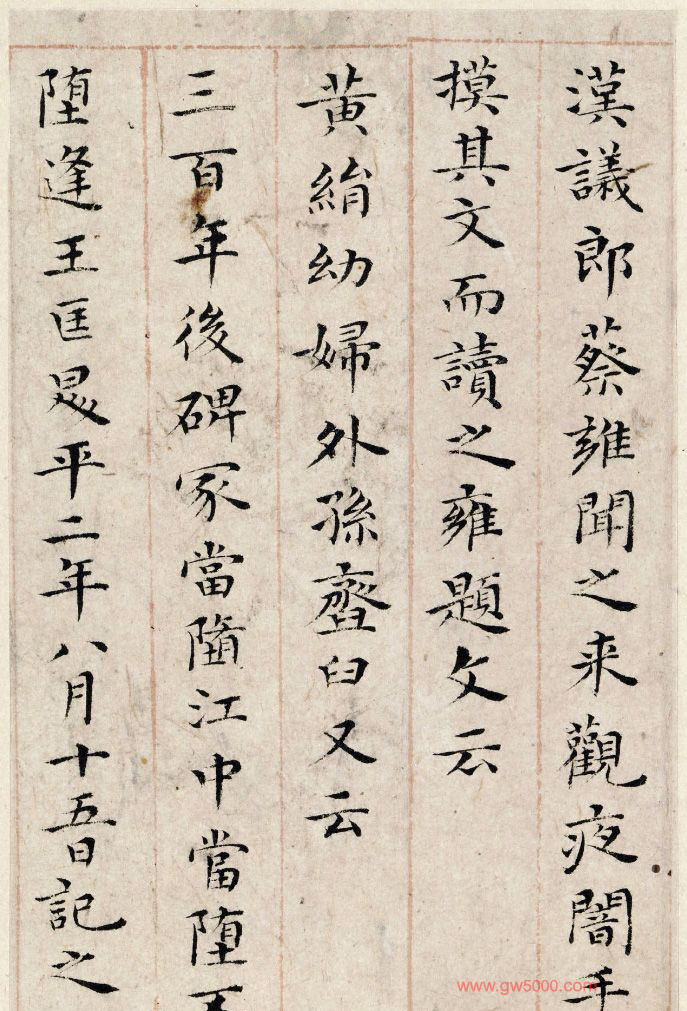 漢議郎蔡雍聞之来觀夜闇手
摸其文而讀之雍題文云
黃絹幼婦外孫䪢臼又云
三百年後碑冢當墮江中當墮不
墮逢王匡昇平二年八月十五日記之
www.gw5000.com